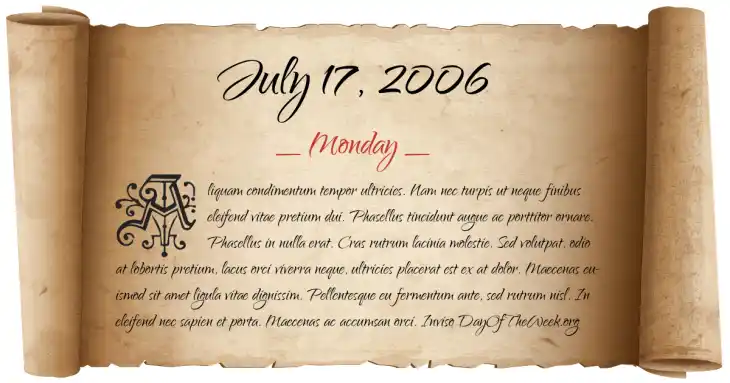 July 17, 2006
__ Monday __
Aliquam condimentum tempor ultricies. Nam nec turpis ut neque finibus
eleifend vitae pretium dui. Phasellus tincidunt augue ac porttitor ornare.
Phasellus in nulla erat. Cras rutrum lacinia molestie. Sed volutpat, odio
at lobortis pretium, lacus orci viverra neque, ultricies placerat est ex at dolor. Maecenas eu-
ismod sit amet ligula vitae dignissim. Pellentesque eu fermentum ante, sed rutrum nisl. In
eleifend nec sapien et porta. Maecenas ac accumsan orci. Inviso DayOfTheWeek.org